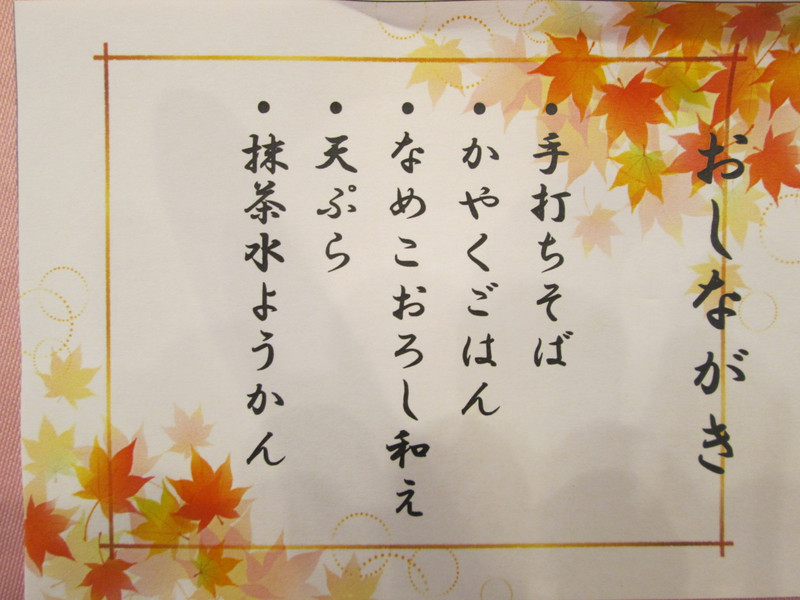 おしながき
・手打ちそば
・かやくごはん
・なめこおろし和え
・天ぷら
・抹茶水ようかん